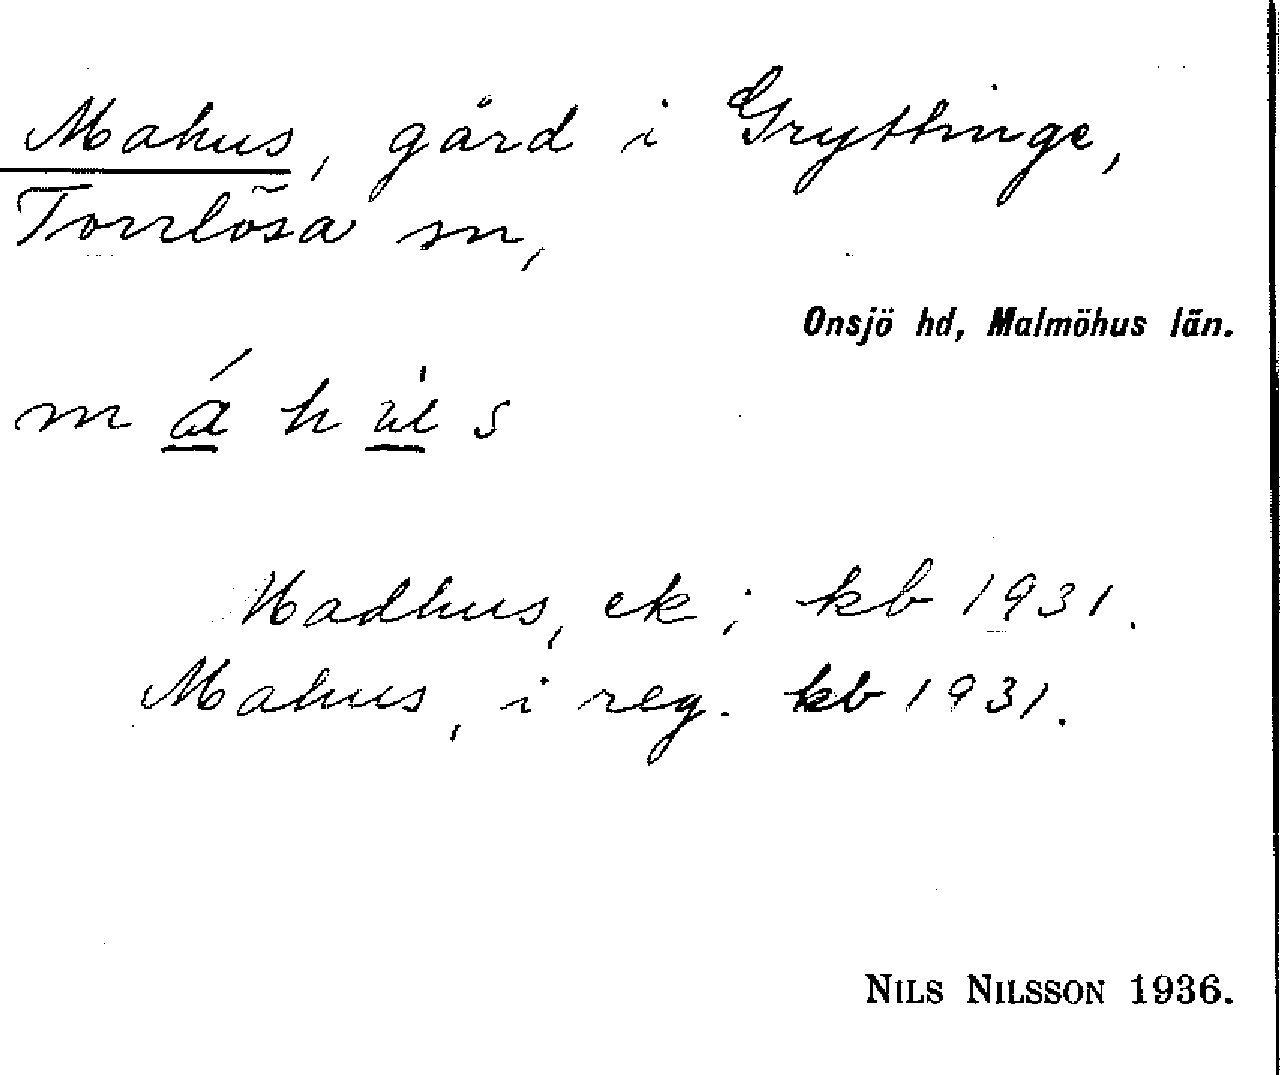 Mahus, gård i Gryttinge,
Torrlösa sn,
Onsjö hd, Malmöhus län.
má hùs
Madhus, ek; kb 1931.
Mahus, i reg. kb 1931.
NILS NILSSON 1936.